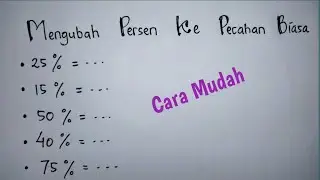 Mengubah Persen Ke Pecahan Biasa
• 25 % = ...
• 15 % = ...
• 50 % = ...
• 40 % = ...
• 75 % = ...
Cara Mudah